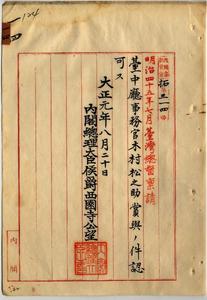 拓三一四
明治四十五年七月臺灣總督稟請
臺中廳事務官木村松之助賞與ノ件認
可ス
大正元年八月二十日
內閣總理大臣侯爵西園寺公望
內閣